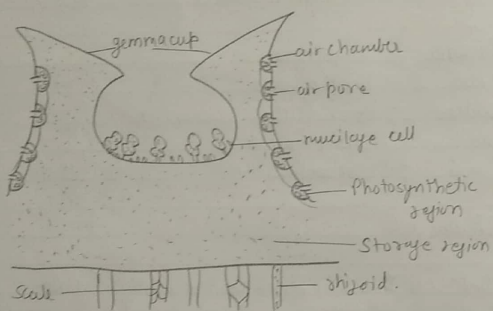 gemmacup
air chamber
air pore
mucilage cell
Photosynthetic
region
Storage region
scale
rhizoid.